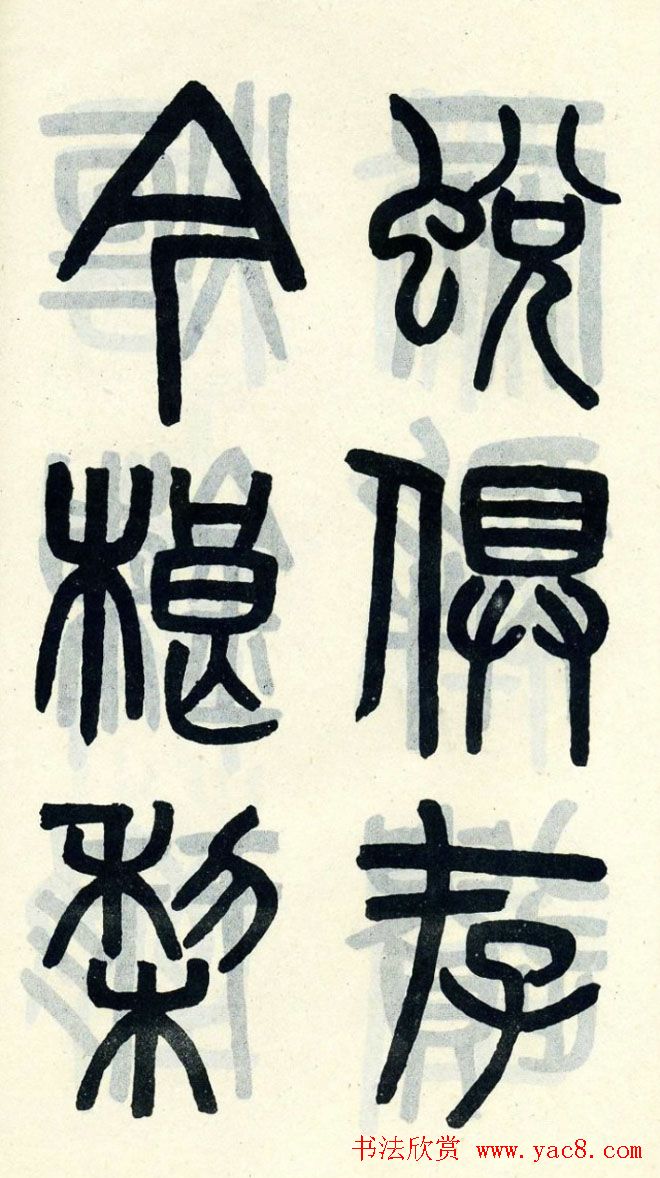 蛻俱存
今椹梨
书法欣赏 www.yac8.com